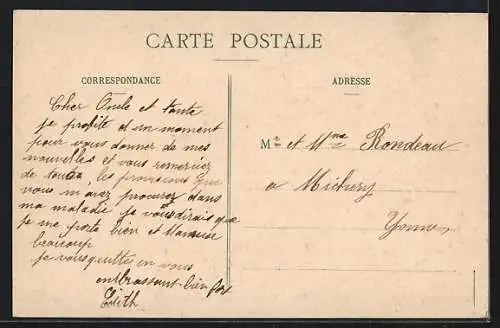 CARTE POSTALE
CORRESPONDANCE
ADRESSE
Cher Oncle et tante
je profite d'un moment
pour vous donner de mes
nouvelles et vous remercier
de toutes les provisions que
vous m'avez procurez dans
ma maladie je vous dirais que
je me porte bien et Maurise
beaucoup
je vous quitte en vous
embrassant bien fort
Edith
Mr et Mme Rondeau
a Michery
Yonne